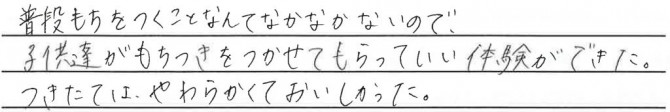 普段もちをつくことなんてなかなかないので、
子供達がもちつきをつかせてもらっていい体験ができた。
つきたては、やわらかくておいしかった。